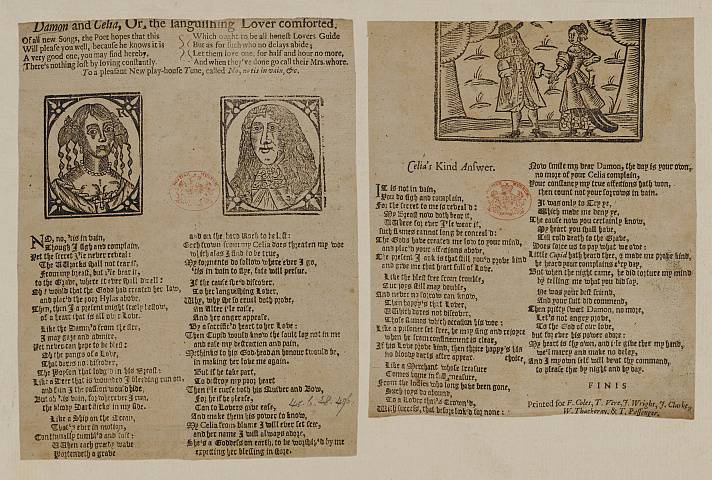 Damon and Celia, Or, the languishing Lover comforted.
Of all new Songs, the Poet hopes that this
Will please you well, because he knows it is
A very good one, you may find hereby,
There's nothing lost by loving constantly.
Which ought to be all honest Lovers Guide
But as for such who no delays abide;
Let them love one, for half and hour no more,
And when they've done go call their Mrs. whore.
To a pleasant New play-house Tune, called No, no tis in vain, &c.
R
NO, no, 'tis in vain,
Though I sigh and complain,
Yet the secret i'le never reveal:
The Winds shall not tear it,
From my breast, but i'le bear it,
to the Grave, where it ever shall dwell:
Oh I wou'd that the Gods had created her low,
and plac'd the poor Hylas above.
Then, then I a present might freely bestow,
of a heart that is all over Love.
Like the Damn'd from the fire,
I may gaze and admire,
Yet never can hope to be blest:
Oh the pangs of a Lover,
That dares not discover,
The Poyson that lodg'd in his Breast:
Like a Deer that is wounded I bleeding run on,
and fain I the passion would hide,
But ah 'tis vain, for wherever I run,
the bloody Dart sticks in my side.
Like a Ship on the Ocean,
That's ever in motion,
Continually tumbl'd and tost:
When each gusty wave
Portendeth a grave
and on the hard Rock to be lost:
Each frown from my Celia does threaten my woe
which alas I find to be true,
My torments do follow where ever I go,
'tis in vain to flye, fate will pursue.
If the cause she'd discover,
To her languishing Lover,
Why, why she so cruel doth prove,
An Altar i'le raise,
And her anger appease,
By a sacrifice'd heart to her Love:
Then Cupid would know the fault lay not in me
and ease my destruction and pain,
Methinks to his God-head an honour t'would be,
in making her love me again.
But if he take part,
To destroy my poor heart
Then i'le curse both his Quiver and Bow,
For he if he please,
Can to Lovers give ease,
And make them his power to know,
My Celia from blame I will ever set free,
and her name I will always adore,
She's a Goddess on earth, to be worship'd by me
expecting her blessing in store.
Celia's Kind Answer.
IT is not in vain,
You do sigh and complain,
For the secret to me is reveal'd:
My Breast now doth bear it,
Where for ever I'le wear it,
such flames cannot long be conceal'd:
The Gods have created me low to your mind,
and plac'd your affections above.
The present I ask is that you'd prove kind
and give me that heart full of Love.
Like the blest free from trouble,
Our joys still may double,
And never no sorrow can know.
Then happy's that Lover,
Which dares not discover,
Those flames which occasion his woe:
Like a prisoner set free, he may sing and rejoyce
when he from confinement is clear,
If his Love prove kind, then thrice happy's his
choise,
no bloody darts after appear.
Like a Merchant whose treasure
Comes home in full measure,
From the Indies who long have been gone,
Such joys do abound,
To a Lover that's Crown'd,
With success, that before look'd for none:
Now smile my dear Damon, the day is your own,
no more of your Celia complain,
Your constancy my true affections hath won,
then count not your sorrows in vain.
It was only to Try ye,
Which made me deny ye,
The cause now you certainly know,
My heart you shall have,
Till cold death to the Grave,
Does force us to pay what we owe:
Little Cupid hath heard thee, & made me prove kind,
he heard your complaints e'ry day,
But when the night came, he did torture my mind
by telling me what you did say.
He was your best friend,
And your suit did commend,
Then prethy sweet Damon, no more,
Let's not angry prove,
To the God of our love,
but for ever his power adore:
My heart is thy own, and i'le give thee my hand,
we'l marry and make no delay,
And I my own self will be at thy command,
to please thee by night and by day.
FINIS
Printed for F. Coles, T. Vere, J. Wright, J. Clarke,
W. Thackeray, & T. Passenger.